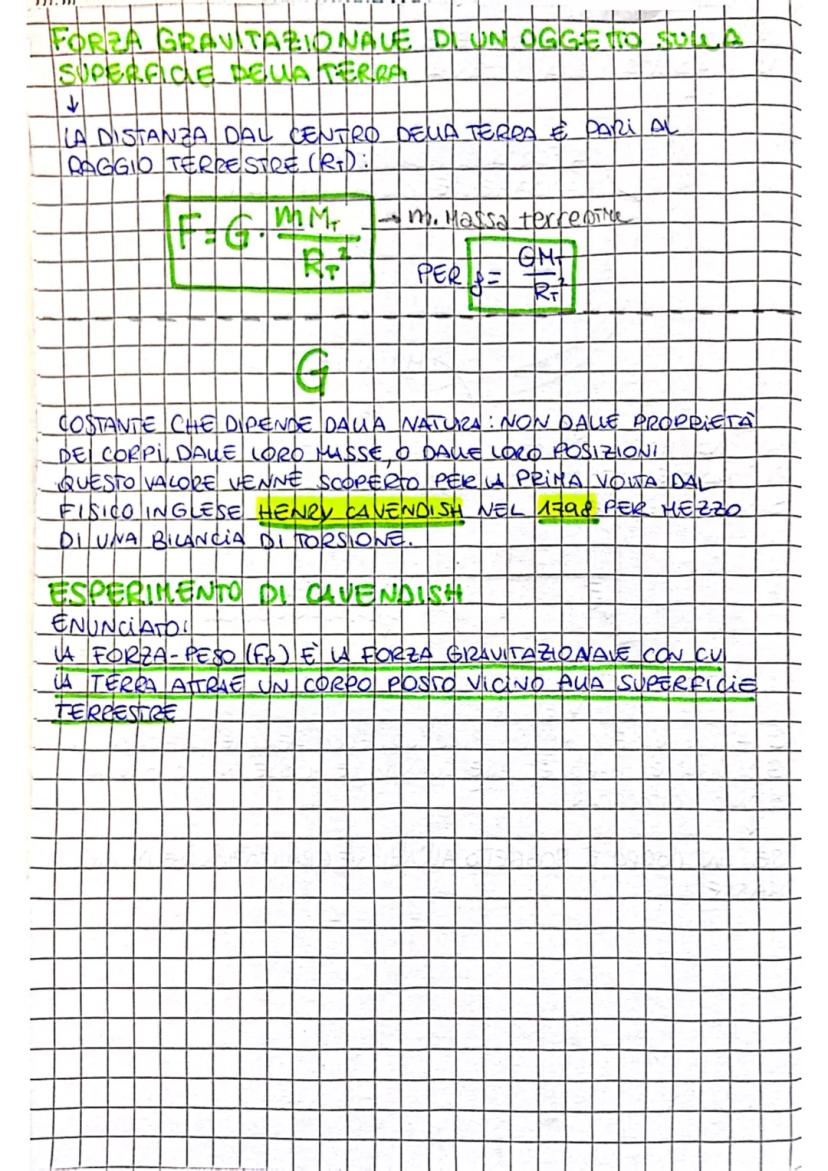 FORZA GRAVITAZIONALE DI UN OGGETTO SULLA
SUPERFICIE DELLA TERRA
↓
LA DISTANZA DAL CENTRO DELLA TERRA È PARI AL
RAGGIO TERRESTRE (RT):
F = G · mMT / RT² → m. Massa terrestre
PER g = GMT / RT²
G
COSTANTE CHE DIPENDE DALLA NATURA: NON DALLE PROPRIETÀ
DEI CORPI, DALLE LORO MASSE, O DALLE LORO POSIZIONI
QUESTO VALORE VENNE SCOPERTO PER LA PRIMA VOLTA DAL
FISICO INGLESE HENRY CAVENDISH NEL 1798 PER MEZZO
DI UNA BILANCIA DI TORSIONE.
ESPERIMENTO DI CAVENDISH
ENUNCIATO:
LA FORZA-PESO (Fp) È LA FORZA GRAVITAZIONALE CON CUI
LA TERRA ATTRAE UN CORPO POSTO VICINO ALLA SUPERFICIE
TERRESTRE